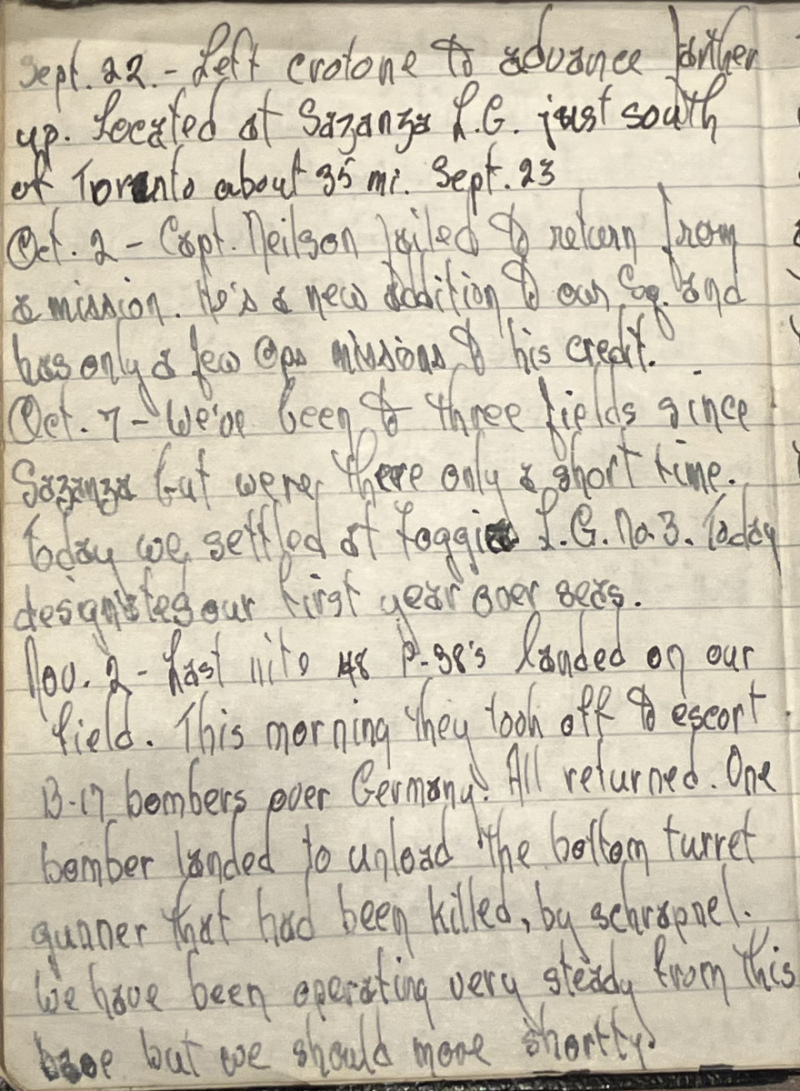 Sept. 22. - Left crotone to advance farther
up. Located at Sazanza L.G. just south
of Toranto about 35 mi. Sept. 23
Oct. 2 - Capt. Neilson failed to return from
a mission. He's a new addition to our Sq. and
has only a few Ops missions to his credit.
Oct. 7 - We've been to three fields since
Sazanza but were there only a short time.
Today we settled at Foggia L.G. No. 3. Today
designates our first year over seas.
Nov. 2 - Last nite 48 P-38's landed on our
field. This morning they took off to escort
B-17 bombers over Germany. All returned. One
bomber landed to unload the bottom turret
gunner that had been killed, by schrapnel.
We have been operating very steady from this
base but we should move shortly.